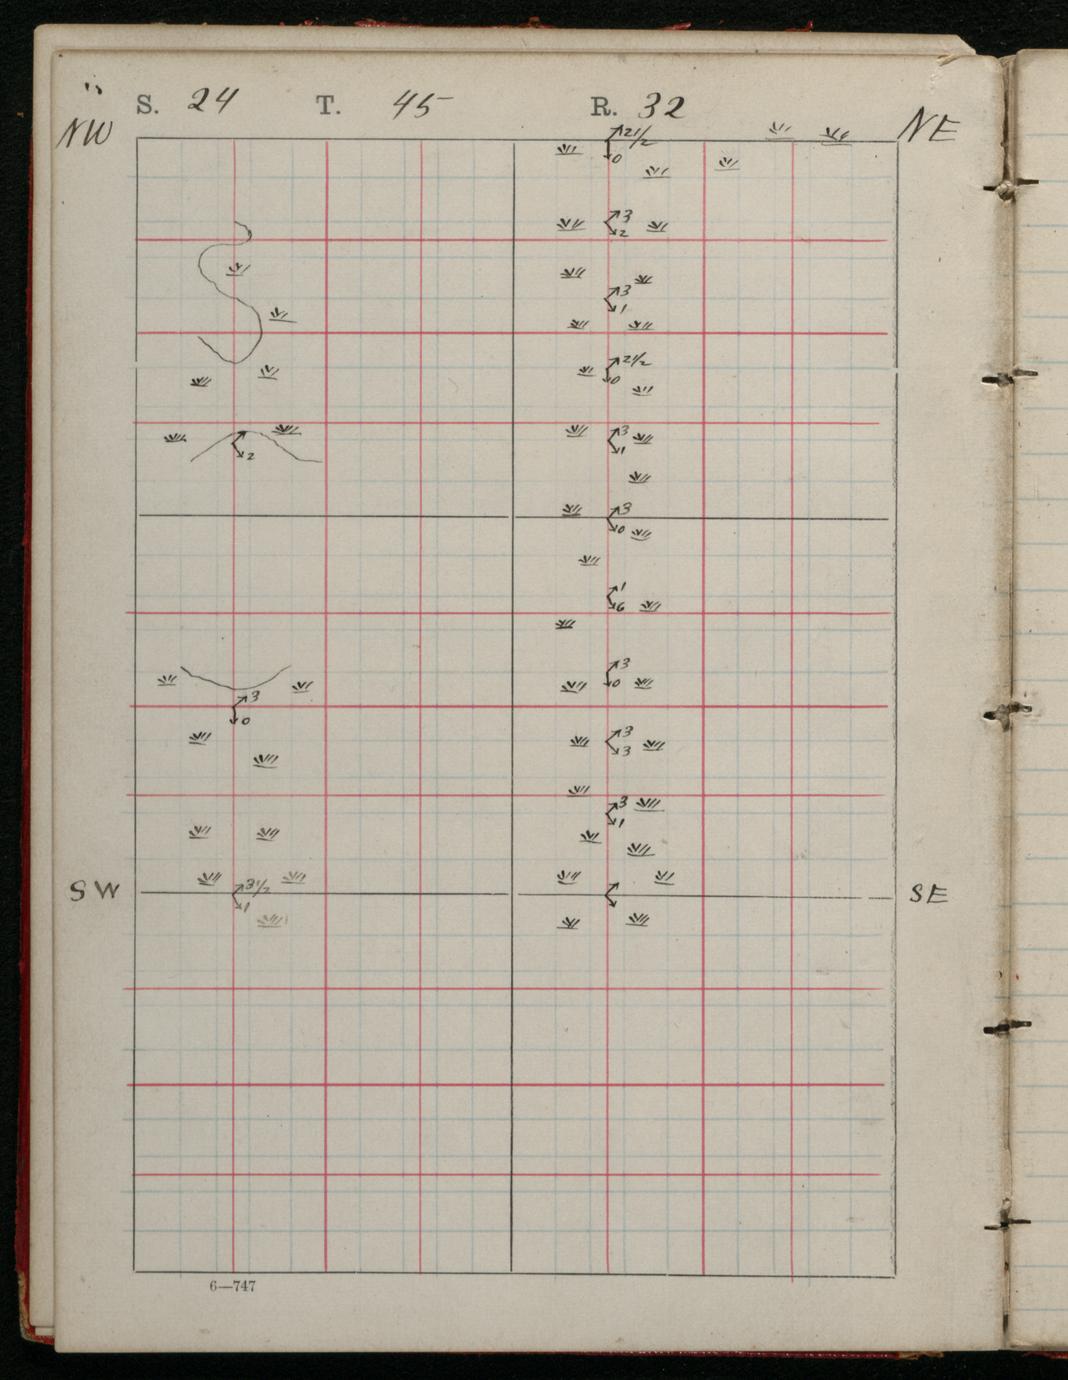 S. 24 T. 45 R. 32
NW NE
2 1/2
0
3
2
3
1
2 1/2
0
3
1
2
3
0
1
6
3
0
3
0
3
3
3
1
SW 3 1/2 SE
1
6—747